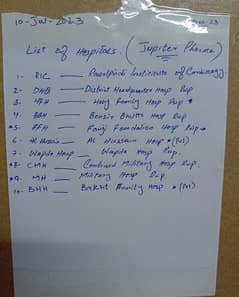 10-Jul-2023
List of Hospitals. (Jupiter Pharma)
1- RIC — Rawalpindi Institute of Cardiology
2- DHQ — District Headquarter Hosp Rwp
3- HFH — Holy Family Hosp Rwp
4- BBH — Benazir Bhutto Hosp Rwp
*5- FFH — Fauji Foundation Hosp Rwp
6- Al Hussain — AL Hussain Hosp *(Pvt)
7- Wapda Hosp — Wapda Hosp Rwp.
*8- CMH — Combined Military Hosp Rwp.
*9- MH — Military Hosp Rwp.
10- BHH — Family Hosp *(Pvt)